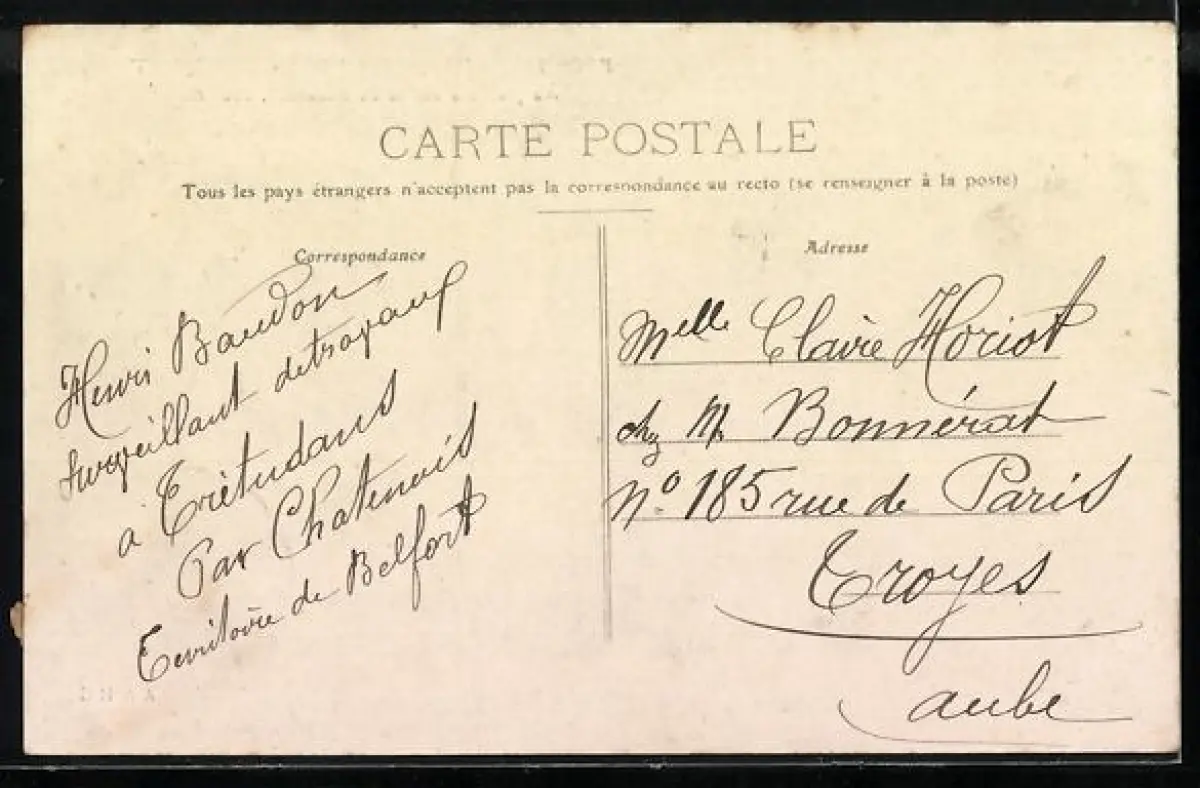 CARTE POSTALE
Tous les pays étrangers n'acceptent pas la correspondance au recto (se renseigner à la poste)
Correspondance
Henri Baudon
surveillant de travaux
à Trétudans
Par Chatenois
Territoire de Belfort
Adresse
Melle Claire Horiot
chez M. Bonnérat
No 185 rue de Paris
Troyes
aube